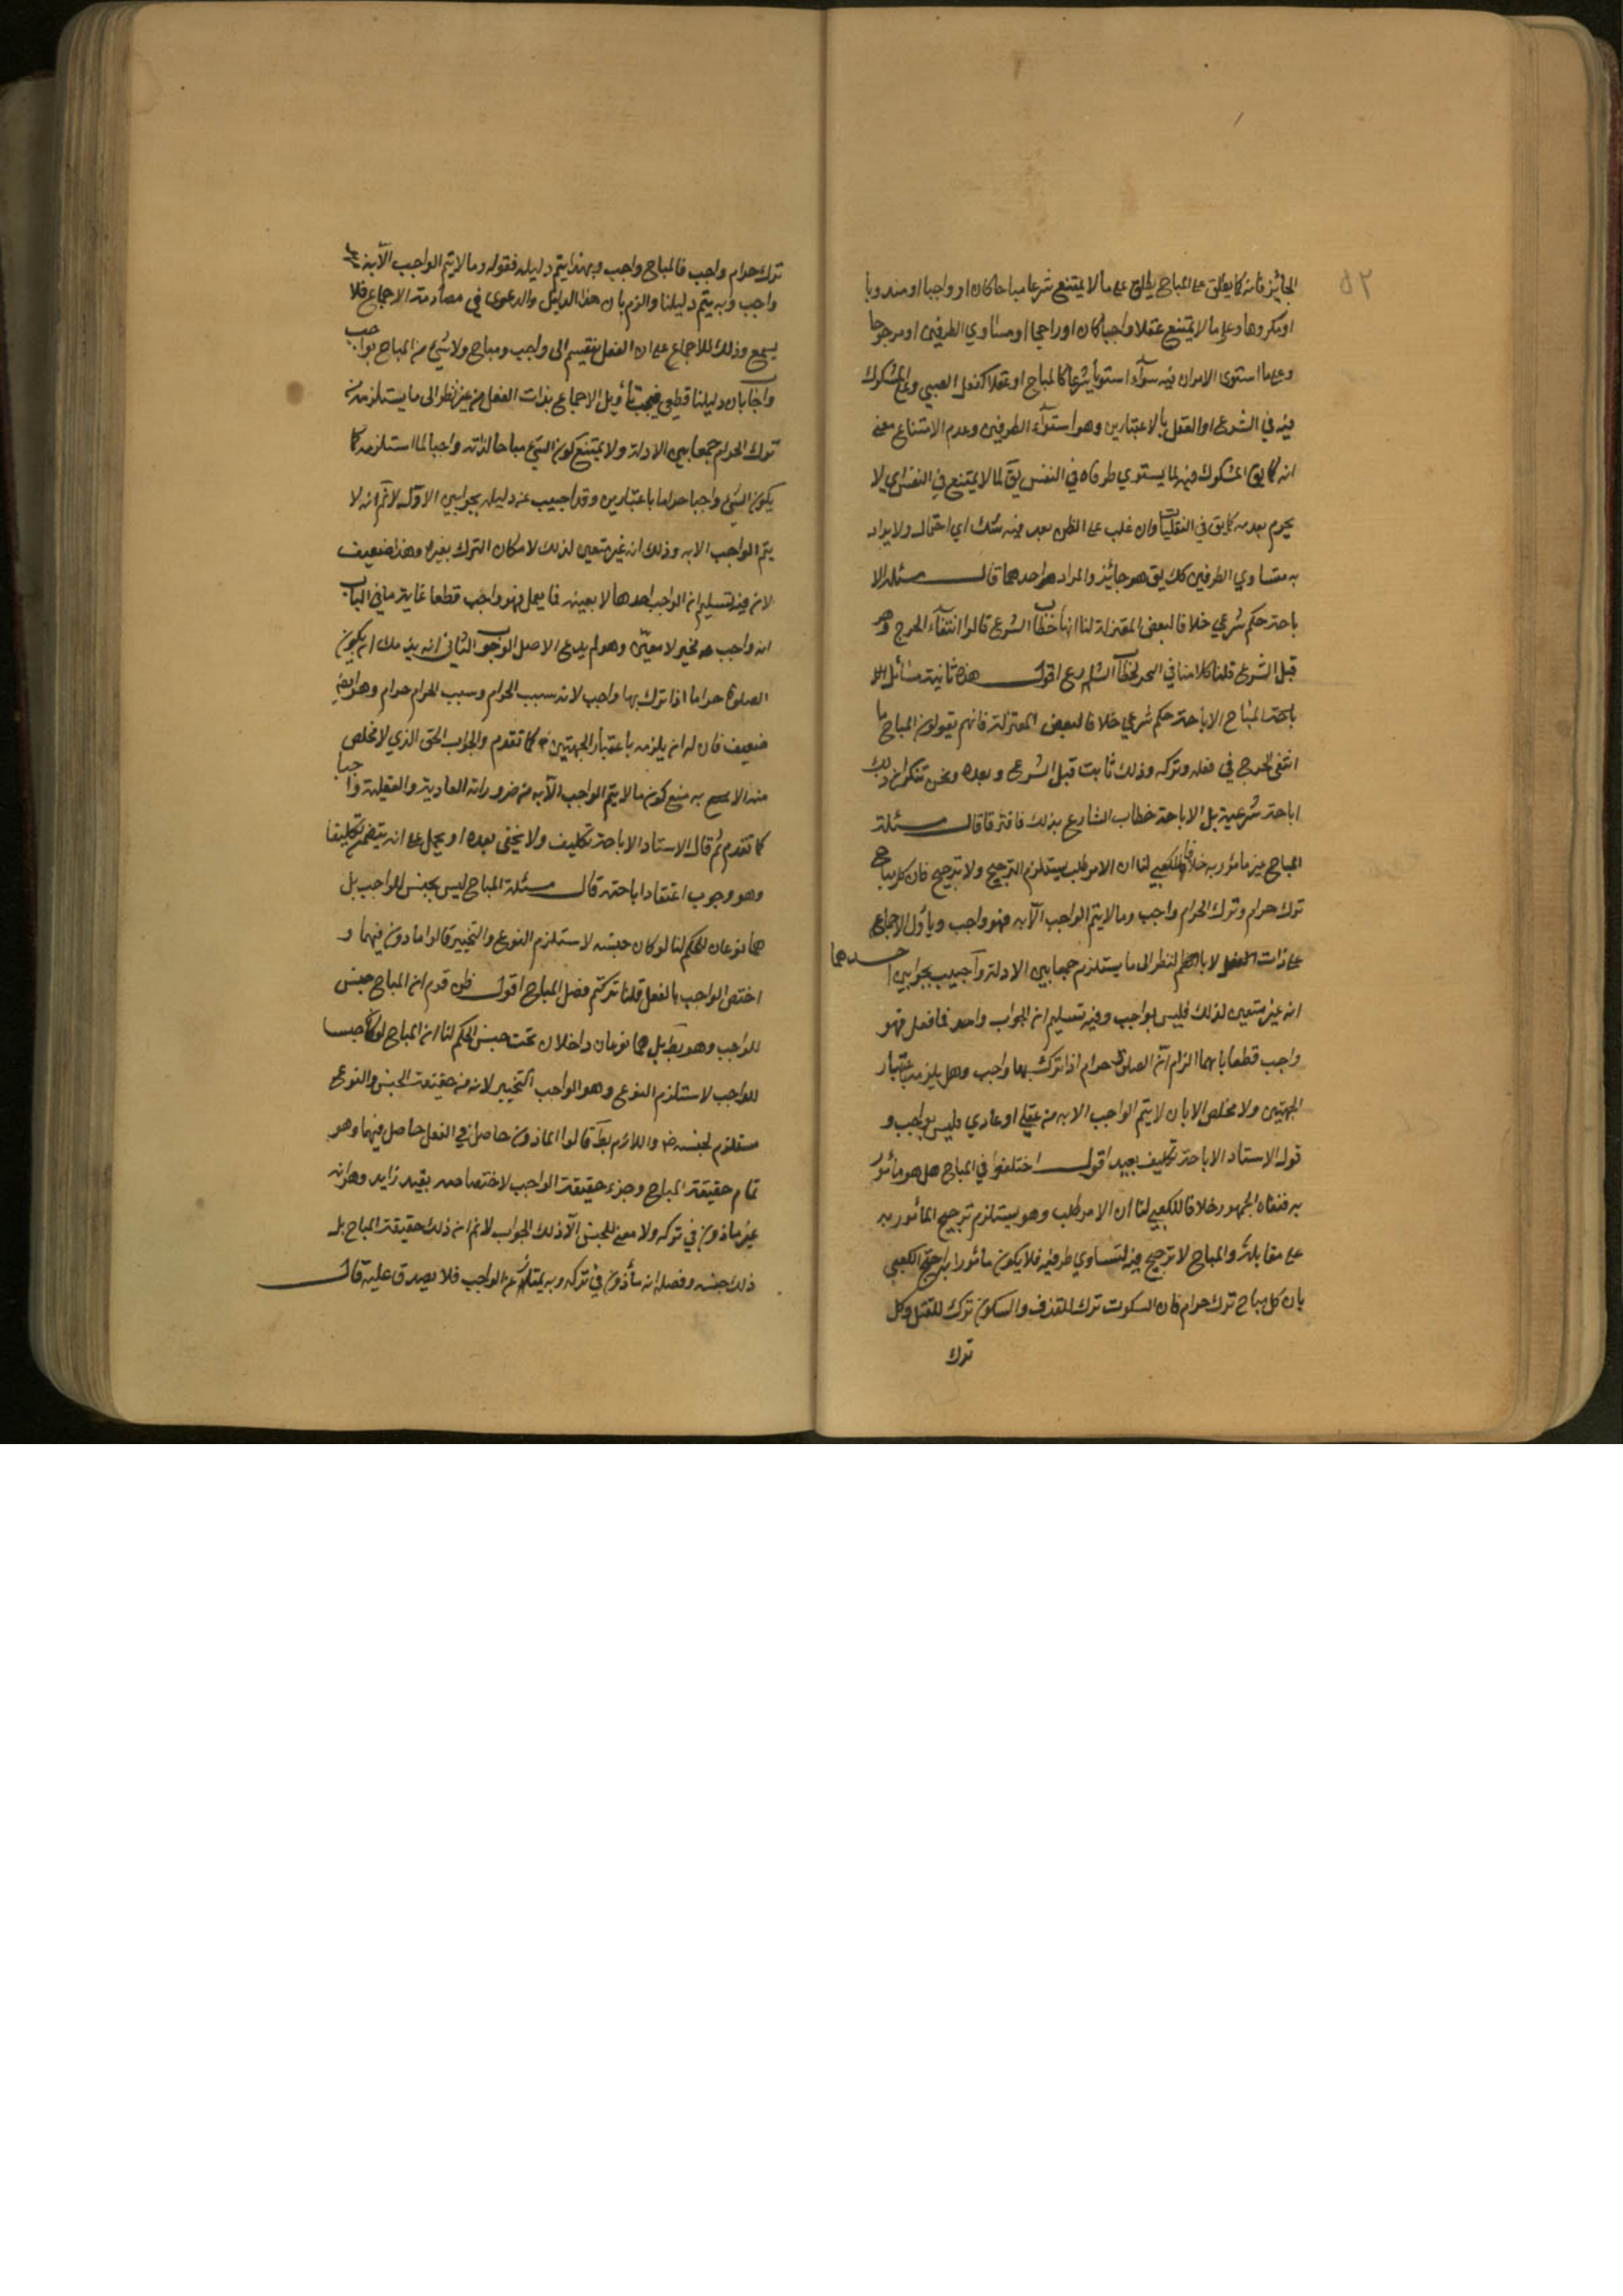 الجائز فانه كما يطلق على المباح يطلق على ما لا يمتنع شرعا مباحا كان او واجبا او مندوبا
او مكروها وعلى ما لا يمتنع عقلا واجبا كان او راجحا او متساوي الطرفين او مرجوحا
وعلى ما استوى الامران فيه سوآء استويا شرعا كالمباح او عقلا كفعل الصبي وعلى المشكوك
فيه في الشرع او العقل بالاعتبارين وهو استوآء الطرفين وعدم الامتناع معنى
انه كما يق المشكوك فيه لما يستوي طرفاه في النفس يق لما لا يمتنع في النفس اي لا
يجزم بعدمه كما يق في النقليات وان غلب على الظن بعد فيه شك اي احتمال ولا يراد
به متساوي الطرفين كك يق هو جائز والمراد احدهما قال مسئله الا
باحة حكم شرعي خلافا لبعض المعتزلة لنا انها خطاب الشرع قالوا انتفآء الحرج وهو
قبل الشرع قلنا كلامنا في الحرج بخطاب الشارع اقول هذه ثانية مسائل
المباح الاباحة حكم شرعي خلافا لبعض المعتزلة فانهم يقولون المباح ما
انتفى الحرج في فعله وتركه وذلك ثابت قبل الشرع وبعده ونحن ننكر ان ذلك
اباحة شرعية بل الاباحة خطاب الشارع بذلك فافترقا قال مسئلة
المباح غير مأمور به خلافا للكعبي لنا ان الامر طلب يستلزم الترجيح ولا ترجيح قال كل مباح
ترك حرام وترك الحرام واجب وما لا يتم الواجب الآ به فهو واجب وياؤل الاجماع
على ذات الفعل لا بالنظر الى ما يستلزم جمعا بين الادلة وآجيب بجوابين احدهما
انه غير متعين لذلك فليس بواجب وفيه تسليم ان الواجب واحد فما فعل فهو
واجب قطعا ثانيهما الزام آن الصلوة حرام اذا ترك بها واجب وهو يلزمه باعتبار
الجهتين ولا مخلص الا بان لا يتم الواجب الا به من عقلي او عادي فليس بواجب و
قول الاستاد الاباحة تكليف بعيد اقول اختلفوا في المباح هل هو مأمور
به فنفاه الجمهور خلافا للكعبي لنا ان الامر طلب وهو يستلزم ترجيح المأمور به
على مقابله والمباح لا ترجيح فيه لتساوي طرفيه فلا يكون مأمورا به احتج الكعبي
بان كل مباح ترك حرام فان السكوت ترك للقذف والسكون ترك للقتل وكل
ترك
ترك حرام واجب فالمباح واجب وبهذا يتم دليله فقوله وما لا يتم الواجب الآ به فهو
واجب وبه يتم دليلنا والزم بان هذا الدليل والدعوى في مصادمة الاجماع فلا
يسمع وذلك للاجماع على ان الفعل ينقسم الى واجب ومباح ولا شئ من المباح بواجب
واجاب بان دليلنا قطعي فيجب تأويل الاجماع بذات الفعل من غير نظر الى ما يستلزمه من
ترك الحرام جمعا بين الادلة ولا يمتنع كون الشئ مباحا لذاته واجبا لما استلزمه كما
يكون الشئ واجبا حراما باعتبارين وقد اجيب عن دليله بجوابين الاول لا نم انه لا
يتم الواجب الا به وذلك انه غير متعين لذلك لامكان الترك بغيره وهذا ضعيف
لان فيه تسليم ان الواجب احدها لا بعينه فما يعمل فهو واجب قطعا غاية ما في الباب
انه واجب مخير لا معيّن وهو لم يدع الا اصل الوجوب الثاني انه يلزمك ان يكون
الصلوة حراما اذا ترك بها واجب لانه سبب الحرام وسبب الحرام حرام وهو ايضا
ضعيف فان له ان يلزمه باعتبار الجهتين كما تقدم والجواب الحق الذي لا مخلص
منه الا به منع كون ما لا يتم الواجب الآ به من ضروراته العادية والعقلية واجبا
كما تقدم ثم قال الاستاد الاباحة تكليف ولا يخفى بعده او يحمل على انه يتضمن تكليفا
وهو وجوب اعتقاد اباحته قال مسئلة المباح ليس بجنس للواجب بل
هما نوعان للحكم لنا لو كان جنسه لاستلزم النوع والتخيير قالوا ماذون فيهما و
اختص الواجب بالفعل قلنا تركتم فصل المباح اقول ظن قوم ان المباح جنس
للواجب وهو بط بل هما نوعان داخلان تحت جنس الحكم لنا ان المباح لو كان جنسا
للواجب لاستلزم النوع وهو الواجب التخيير لانه من حقيقة الجنس والنوع
مستلزم لجنسه واللازم بط قالوا الماذون حاصل في الفعل حاصل فيهما وهو
تمام حقيقة المباح وجزء حقيقة الواجب لاختصاصه بقيد زايد وهو انه
غير ماذون في تركه ولا معنى للجنس الآ ذلك الجواب لا نم ان ذلك حقيقة المباح بل
ذلك جنسه وفصله انه مأذون في تركه وبه يمتاز عن الواجب فلا يصدق عليه قال